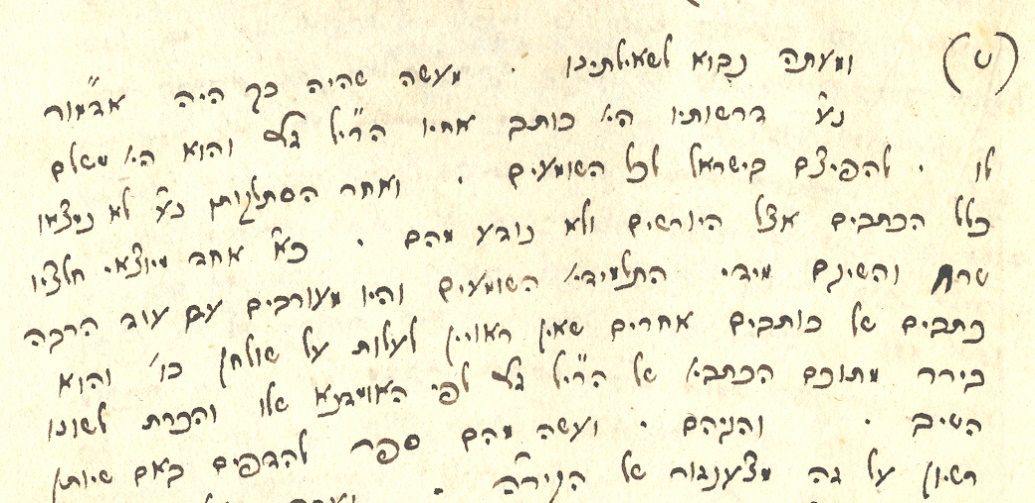 (ט) ומעתה נבוא לשאילתינו . מעשה שהיה כך היה אדמו"ר
נ"ע דרשותיו הי' כותב אחיו הר"ל ז"ל והוא הי' משלם
לו . להפיצם בישראל לכל השומעים . ואחר הסתלקותו נ"ע לא נמצאו
כלל הכתבים אצל היורשים ולא נודע מהם . כ"א אחד מיוצאי חלציו
טרח והשיגם מידי התלמידי' השומעים והיו מעורבים עם עוד הרבה
כתבים של כותבים אחרים שאין ראויין לעלות על שולחן כו' והוא
בירר מתוכם הכתבי' של הר"ל ז"ל לפי האומדנא שלו והכרת לשונו
השיב . והגיהם . ועשה מהם ספר להדפיס באם שיותן
רשיון על זה מצענזור של הקיר"ה .